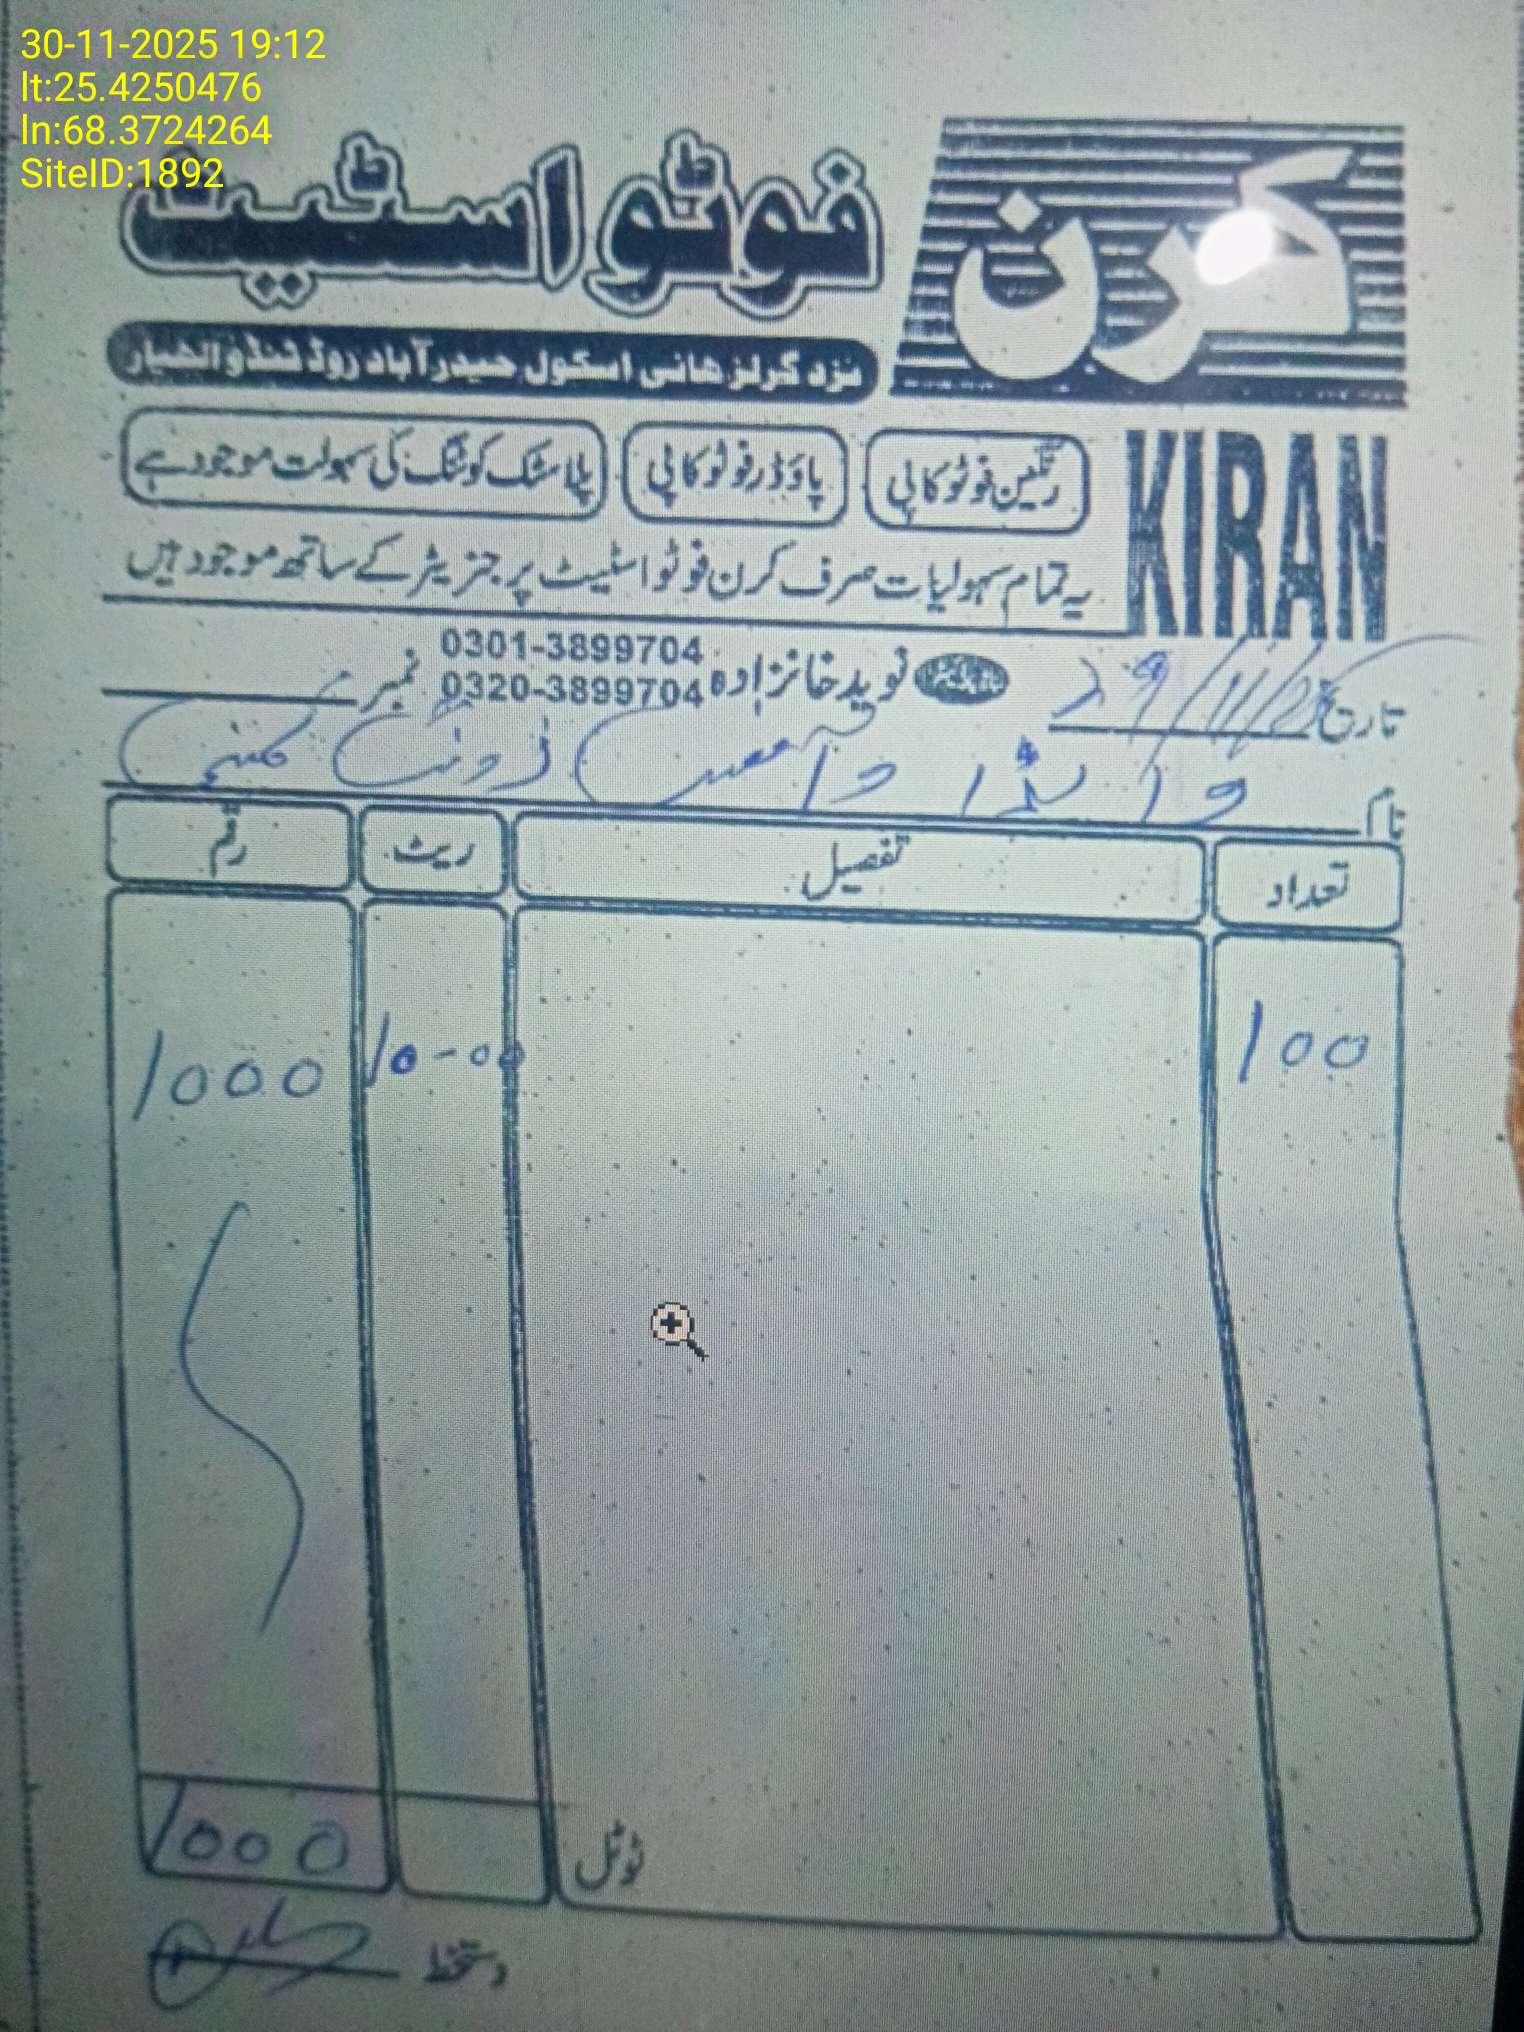 30-11-2025 19:12
lt:25.4250476
ln:68.3724264
SiteID:1892
کرن فوٹو اسٹیٹ
نزد گرلز ہائی اسکول حیدرآباد روڈ ٹنڈوالہیار
KIRAN
رنگین فوٹو کاپی
پاؤڈر فوٹو کاپی
پلاسٹک کوٹنگ کی سہولت موجود ہے
یہ تمام سہولیات صرف کرن فوٹو اسٹیٹ پر جنریٹر کے ساتھ موجود ہیں
نوید خانزادہ
0301-3899704
0320-3899704
نمبر
تاریخ 29/11/25
نام
تعداد تفصیل ریٹ رقم
100 10-00 1000
ٹوٹل 1000
دستخط